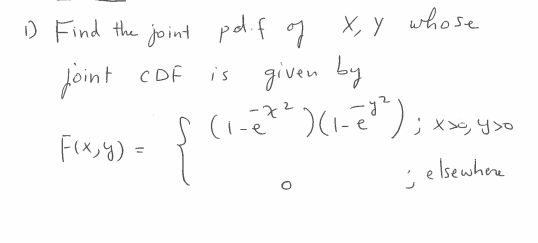 1) Find the joint pd.f of X, Y whose
joint CDF is given by
F(x,y) = { (1-e^{-x^2})(1-e^{-y^2}) ; x>0, y>0
0 ; elsewhere